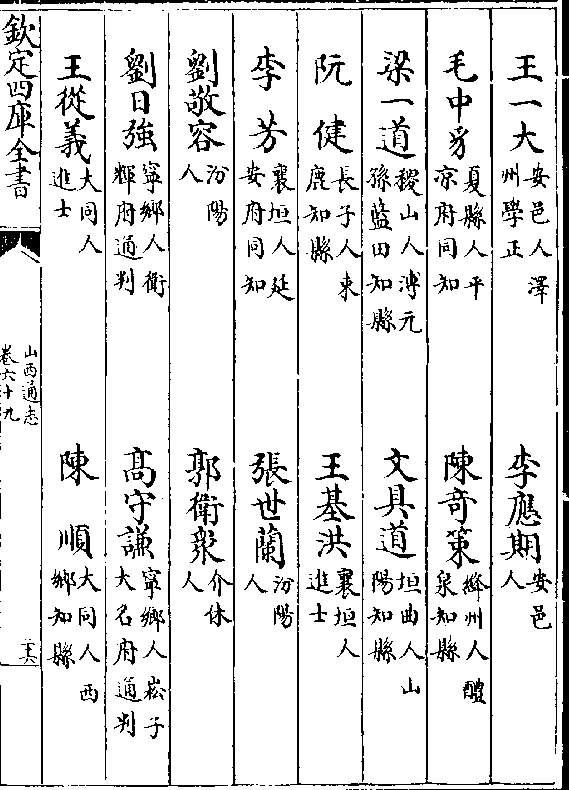 王一大 安邑人澤州學正
李應期 安邑人
毛中豸 夏縣人平凉府同知
陳奇策 絳州人醴泉知縣
梁一道 稷山人溥元孫藍田知縣
文具道 垣曲人山陽知縣
阮健 長子人東鹿知縣
王基洪 襄垣人進士
李芳 襄垣人延安府同知
張世蘭 汾陽人
劉敬容 汾陽人
郭衛衆 介休人
劉日強 寧鄉人衛輝府通判
高守謙 寧鄉人崧子大名府通判
王從義 大同人進士
陳順 大同人西鄉知縣
欽定四庫全書
山西通志
卷六十九